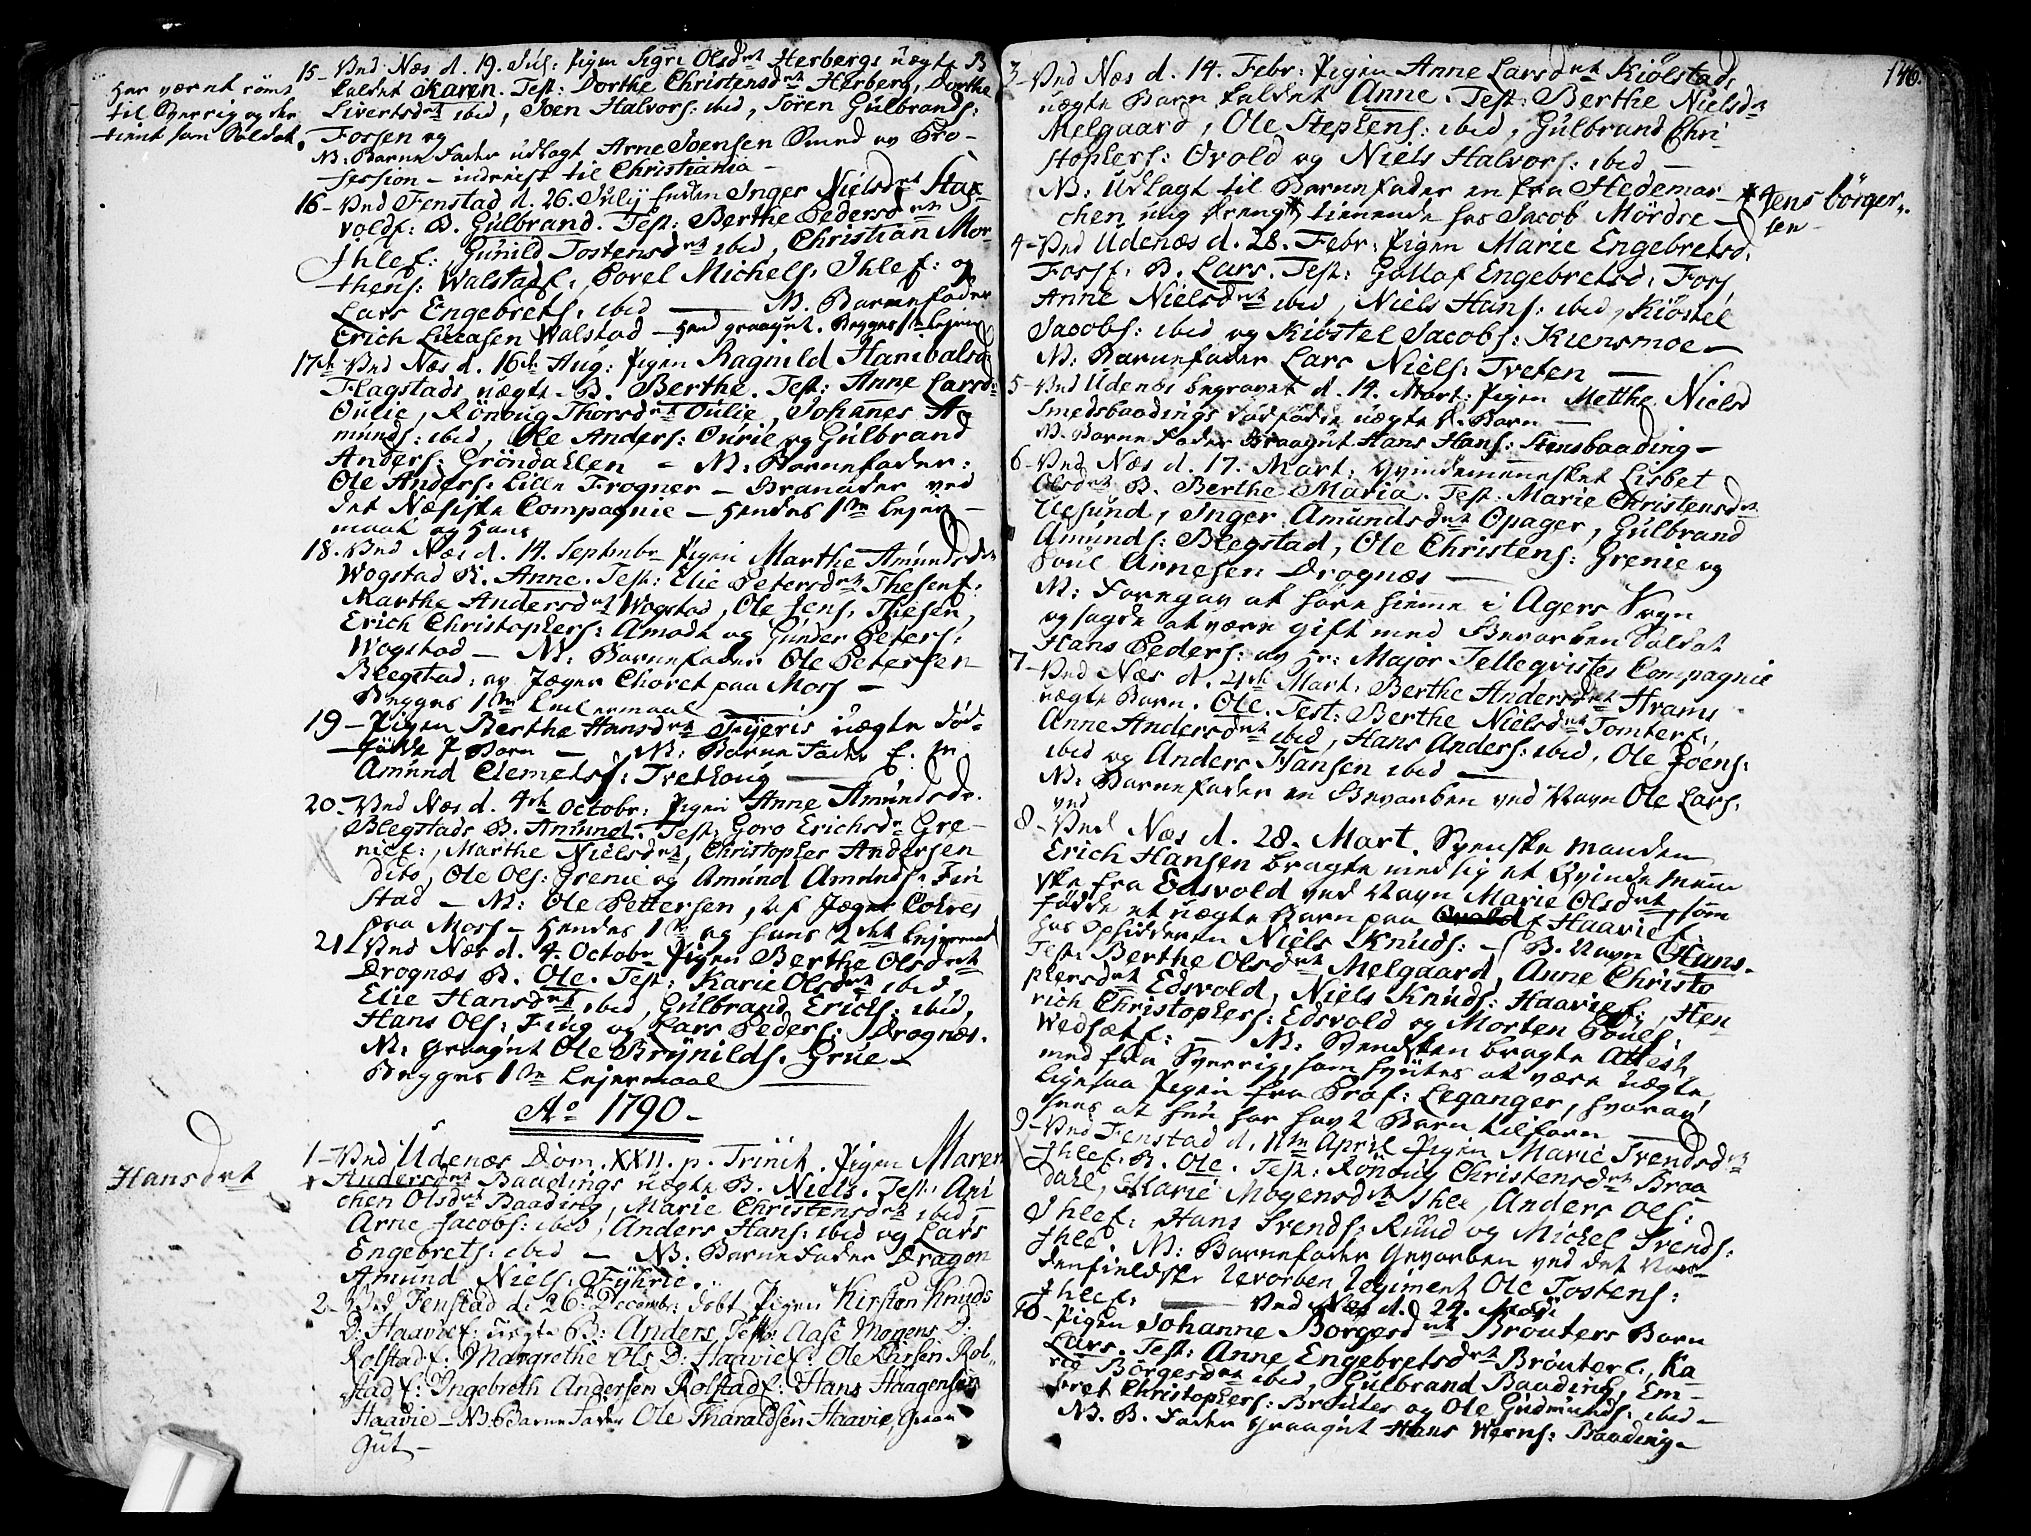 Har været rømt
til Sverrig og der
tient som Soldat.
15 - Ved Næs d. 19. Jul: Pigen Sigri Olsdrt Herbergs uægte B
kaldet Karen. Test: Dorthe Christensdrt Herberg, Dorthe
Livertsdrt ibid, Joen Halvors: ibid, Sören Gülbrands:
Fossen og
NB: Barne Fader udlagt Arne Joensen Smed av Pro-
fession - indreist til Christiania -
16 - Ved Fenstad d. 26. July Inger Nielsdrt
voldf: B. Gülbrand. Test: Berthe Pedersdrt
Ihlef: Gunild Tostensdrt ibid, Christian Mor-
thens: Walstadf:, Povel Michels. Ihlef: og
Lars Engebrets: ibid — NB. Barnefader
Erich Lucasen Walstad - Begges 1te Lejerm
17de Ved Næs d. 16de Aug: Pigen Ragnild Hanibalsd
Flagstads uægte B. Berthe. Test: Anne Larsd:
Oulie, Rönnoug Thorsdrt Oulie, Johannes A-
munds: ibid, Ole Anders: Ourie og Gülbrand
Anders: Gröndahlen - NB: Barnefader:
Ole Anders: Lille Frogner - ved
det Næsiske Compagnie - Hendes 1te Lejer-
maal og Hans
18. Ved Næs d. 14. Septembr Pigen Marthe Amündsdr
Wogstad B. Anne. Test: Elie Petersdrt Thesenf:
Marthe Andersdrt Wogstad, Ole Jens. Thesen,
Erich Christophers: Amodt og Gunder Peters:
Wogstad - NB: Barnefader Ole Petersen
Blegstad, av Jæger Choret paa Moss -
Begges 1te Leiermaal
19 - Pigen Berthe Hansdrt Teÿeris uægte död-
födde P Barn — NB: Barne Fader
Amünd Clemets: Trethoug —
20 - Ved Næs d. 4de Octobr: Pigen Anne Amündsdr.
Blegstads B. Amünd. Test: Goro Erichsdr Gre-
nief:, Marthe Nielsdrt, Christopher Andersen
dito, Ole Ols: Grenie og Amünd Amünds: Fin
stad - NB: Ole Pettersen, af Jæger Cohret
paa Moss - Hendes 1te og hans 2det Lejermaal
21 Ved Næs d. 4. Octobr Pigen Berthe Olsdrt
Drognæs B. Ole. Test: Karie Olsdrt ibid,
Elie Hansdrt ibid, Gülbrand Erichs: ibid,
Hans Ols: Fing og Lars Peders: Drognæs.
NB: Graagut Ole Brÿnilds. Grüe -
Begges 1te Lejermaal —
Ao 1790 -
Hansdrt
1 - Ved Udenæs Dom. XXII. p. Trinit. Pigen Maren
Andersdrt Baadings uægte B. Niels. Test: Ani
chen Olsdrt Baading, Marie Christensdrt ibid -
Arne Jacobs: ibid, Anders Hans: ibid og Lars
Engebrets: ibid - NB: Barne Fader Dragon
Amünd Niels. Fÿhrie.
2. Ved Fenstad d: 26: Decembr: döbt Pigen Kirsten Knuds
D: Haavief: uægte B: Anders, Test: Aase Mogens D:
Rolstadf: Margrethe Ols D: Haavief: Ole Larsen Rol-
stadf: Ingebreth Andersen Rolstadf: Hans Haagensen
Haavie - NB: Barne Fader Ole Tharaldsen Haavie, Graa
Gut -
146.
3 - Ved Næs d. 14. Febr: Pigen Anne Larsdrt Kiölstads
uægte Barn kaldet Anne. Test: Berthe Nielsdr
Melgaard, Ole Stephens: ibid, Gülbrand Chri
stophers: Ovold og Niels Halvors: ibid -
NB: Udlagt til Barnefader en fra Hedemar-
chen ung dreng * tienende hos Jacob Mördre -
* Jens börger-
sen -
4 - Ved Udenæs d. 28. Febr: Pigen Marie Engebretsd:
Fossf. B. Lars. Test: Gollof Engebretsd: Foss,
Anne Nielsdrt ibid, Niels Hans: ibid, Kiöstel
Jacobs: ibid og Kiöstel Jacobs: Kiensmoe -
NB: Barnefader Lars Niels: Treten -
5 - Ved Udenæs begravet d. 14. Mart: Pigen Metthe Nielsd
Smedsbaadings dödfødte uægte P. Barn -
NB. Barne Fader Graagut Hans Hans: Stensbaading -
6 - Ved Næs d. 17. Mart: Qvindemennesket Lisbet
Olsdrt B. Berthe Maria. Test: Marie Christensdr
Uesund, Inger Amundsdrt Opager, Gülbrand
Amünds: Blegstad, Ole Christens: Grenie og
Poul Arnesen Drognæs —
NB: Foregav at höre hiemme i Agers Sogn
og sagde at være gift med Hervorben Soldat
Hans Peders: av Hr: Major Tellequistes Compagnie
7 - Ved Næs d. 21de Mart: Berthe Andersdrt Hrams
uægte Barn. Ole. Test: Berthe Nielsdrt Tomterf,
Anne Andersdrt ibid, Hans Anders: ibid, Ole Joens:
ibid og Anders Hansen ibid —
NB: Barnefader en Hervorben ved Navn Ole Lars.
ved
8 - Ved Næs d. 28. Mart. Svenske manden
Erich Hansen bragte med sig et Qvinde menne
ske fra Edsvold ved Navn Marie Olsdrt, som
födde et uægte Barn paa Haavie
hos Opsidderen Niels Knuds: - B. Navn Hans.
Test: Berthe Olsdrt Melgaard, Anne Christo
phersdrt Edsvold, Niels Knuds: Haavief:, Hen
rich Christophers: Edsvold og Morten Poüels:
Wedsætf: - NB: Svensken bragte Attest
med fra Sverrig, som syntes at være uægte,
ligesaa Pigen fra Prof: Leganger, hvorav
sees at hun har havt 2 Barn tilforn -
9 - Ved Fenstad d. 11te April Pigen Marie Svendsdrt
Ihlef. B. Ole. Test: Rönnoug Christensdrt Braa-
dahl, Marie Mogensdrt Ihle, Anders Ols:
Ihlef: Hans Svends: Ruud og Michel Svends:
Ihle. NB: Barnefader Gevorben ved det Nor-
denfieldske Gevorben Regiment Ole Tostens:
Ihlef: — Ved Næs d. 24. Maji
10 - Pigen Johanne Börgesdrt Bröuters Barn
Lars. Test: Anne Engebretsdrt Bröuterf:, Ka
rie Börgesdrt ibid, Gülbrand Baading, Em-
bret Christophers: Bröuter og Ole Gudmunds. ibid -
NB. B. Fader Graagut Hans Werns: Baading -